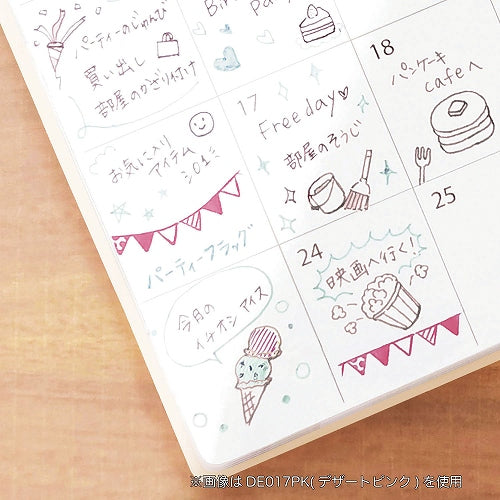 パーティーのじゅんび
買い出し
部屋のかざり付け
17
Free day
部屋のそうじ
18
パンケーキ
cafeへ
お気に入り
アイテム
パーティーフラッグ
24
映画へ行く!
25
今月の
イチオシ アイス
※画像は DE017PK( デザートピンク ) を使用